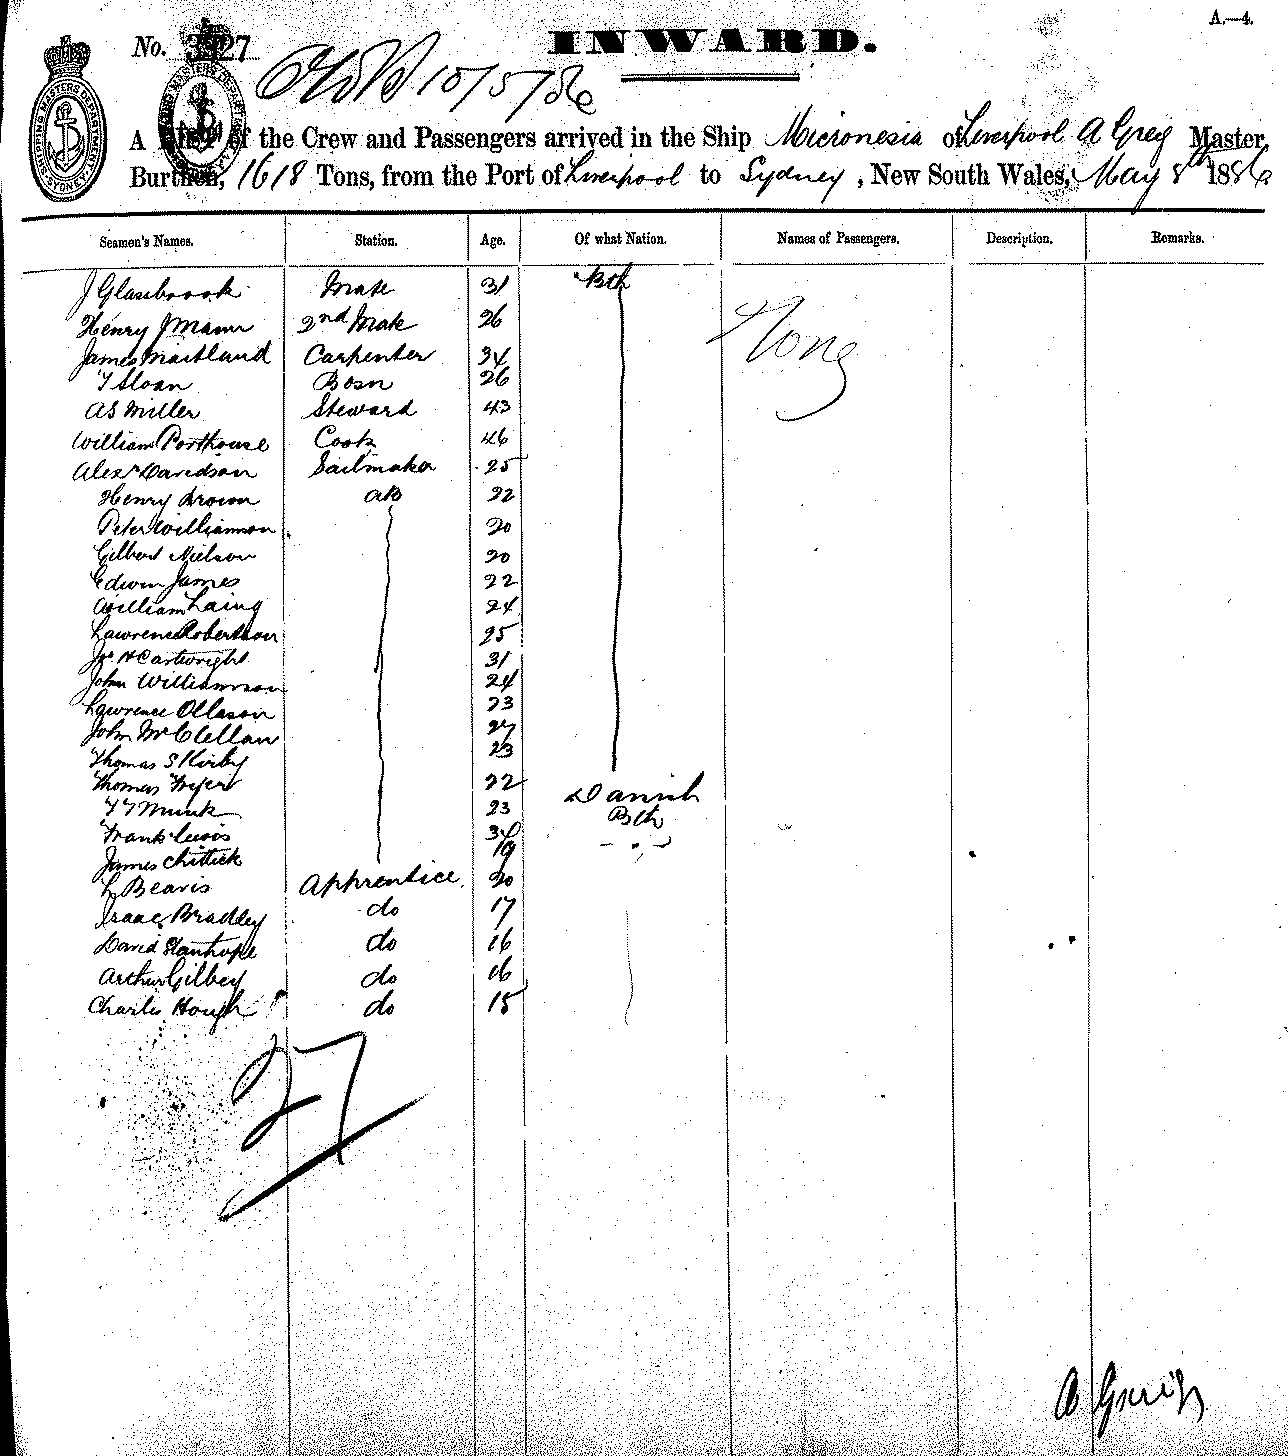 A.—4.
No. 3327
INWARD.
10/5/86
A List of the Crew and Passengers arrived in the Ship Micronesia of Liverpool A Greig Master,
Burthen, 1618 Tons, from the Port of Liverpool to Sydney, New South Wales, May 8th 1886
SHIPPING MASTERS DEPARTMENT SYDNEY
Seamen's Names. Station. Age. Of what Nation. Names of Passengers. Description. Remarks.
J Glassbrook Mate 31 Bth
Henry J Mann 2nd Mate 26 None
James Maitland Carpenter 34
T Sloan Bosn 26
A S Miller Steward 43
William Porthouse Cook 46
Alexr Davidson Sailmaker 25
Henry Brown AB 22
Peter Williamson 20
Gilbert Nielson 20
Edwin James 22
William Laing 24
Lawrence Robertson 25
Jno H Cartwright 31
John Williamson 24
Lawrence Ollason 23
John McClellan 27
Thomas S Kirby 23
Thomas Fryer 22
T T Munk 23 Danish
Frank Lewis 34 Bth
James Chittick 19 - " -
L Bearis Apprentice 20
Isaac Bradley do 17
David Stanhope do 16
Arthur Gilbey do 16
Charles Hough do 15
27
A Greig